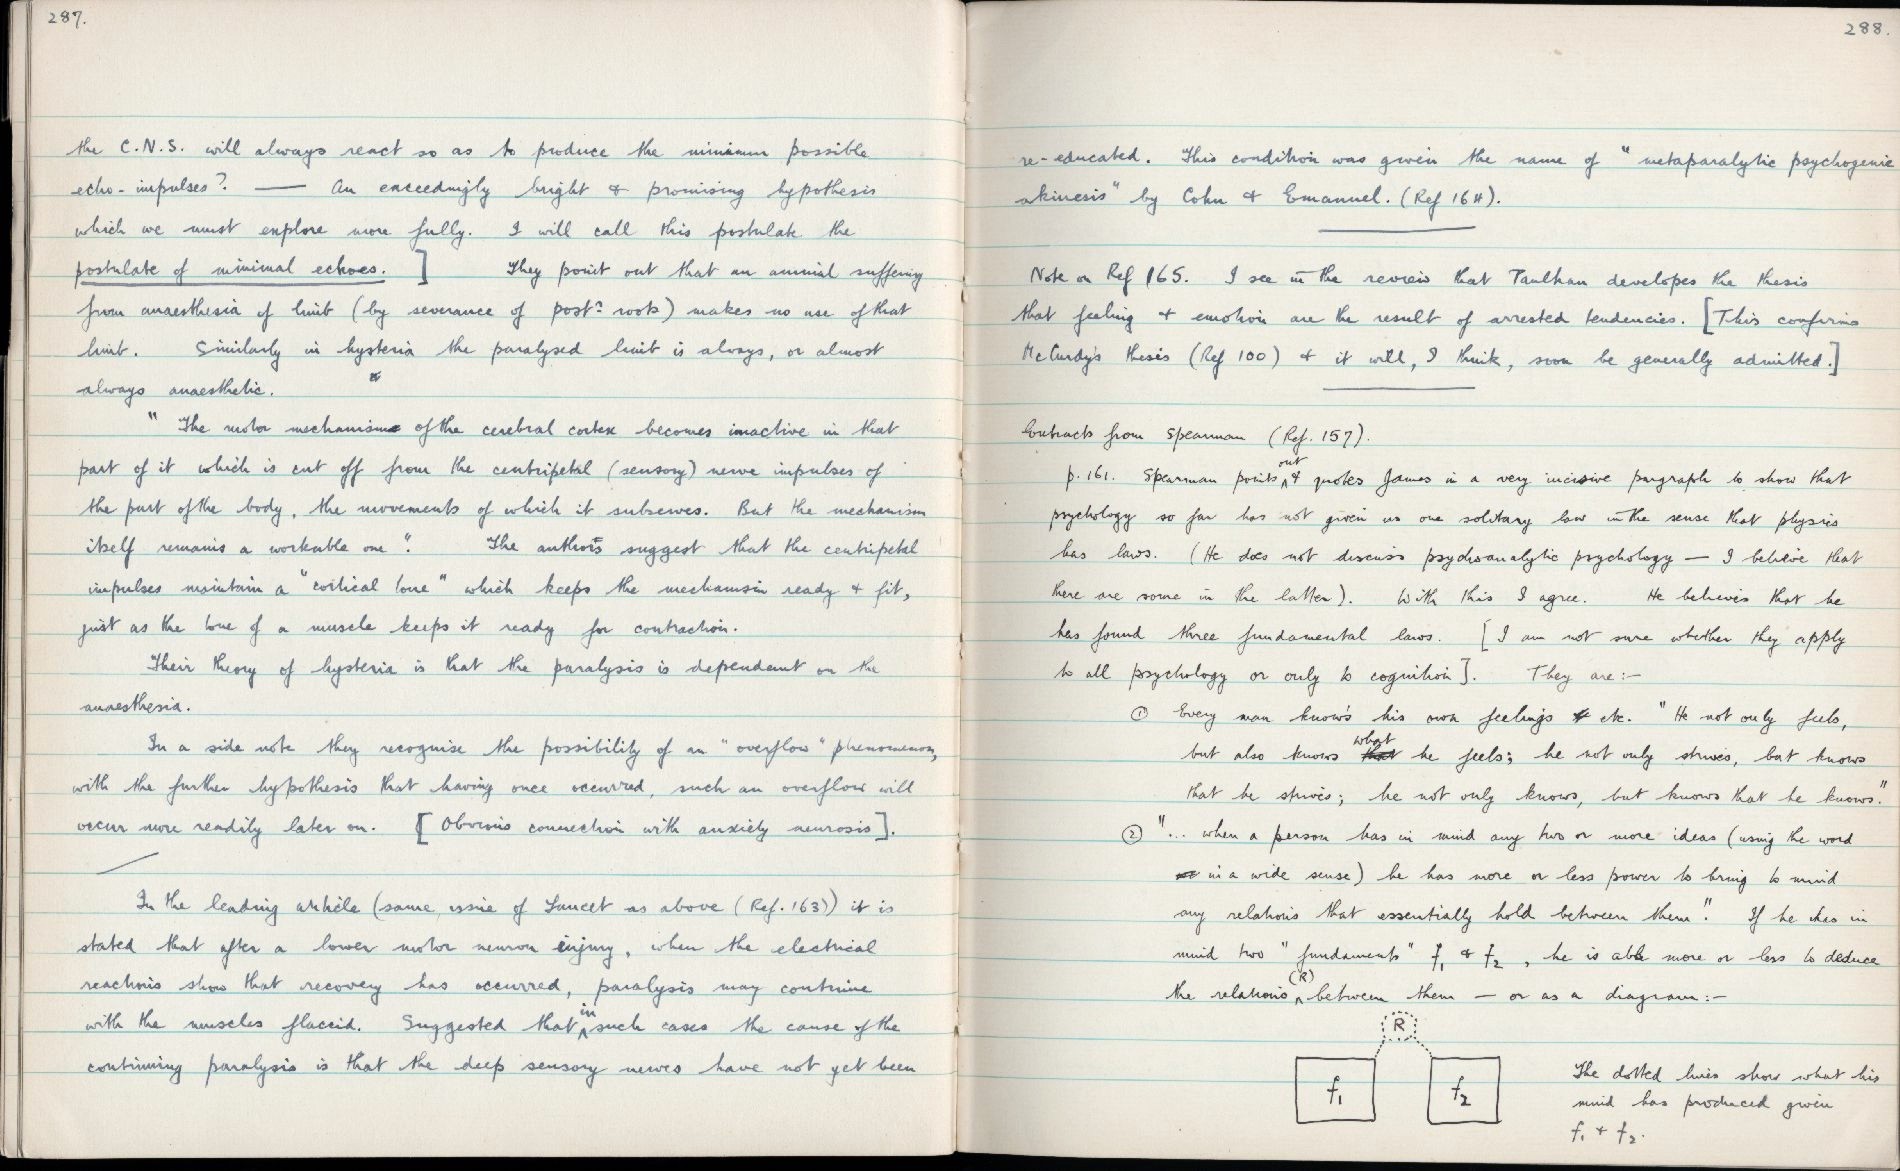 287.
the C.N.S. will always react so as to produce the minimum possible
echo-impulses? — An exceedingly bright & promising hypothesis
which we must explore more fully. I will call this postulate the
postulate of minimal echoes. ] They point out that an animal suffering
from anaesthesia of limb (by severance of post? roots) makes no use of that
limb. Similarly in hysteria the paralysed limb is always, or almost
always anaesthetic.
" The motor mechanism of the cerebral cortex becomes inactive in that
part of it which is cut off from the centripetal (sensory) nerve impulses of
the part of the body, the movements of which it subserves. But the mechanism
itself remains a workable one". The authors suggest that the centripetal
impulses maintain a "cortical tone" which keeps the mechanism ready & fit,
just as the tone of a muscle keeps it ready for contraction.
Their theory of hysteria is that the paralysis is dependant on the
anaesthesia.
In a side note they recognise the possibility of an "overflow" phenomenon,
with the further hypothesis that having once occurred, such an overflow will
occur more readily later on. [Obvious connection with anxiety neurosis].
In the leading article (same issue of Lancet as above (Ref. 163)) it is
stated that after a lower motor neuron injury, when the electrical
reactions show that recovery has occurred, paralysis may continue
with the muscles flaccid. Suggested that in such cases the cause of the
continuing paralysis is that the deep sensory nerves have not yet been
288.
re-educated. This condition was given the name of "metaparalytic psychogenic
akinesis" by Cohn & Emanuel. (Ref 164).
Note on Ref 165. I see in the review that Paulhan developes the thesis
that feeling & emotion are the result of arrested tendencies. [This confirms
McCurdy's thesis (Ref 100) & it will, I think, soon be generally admitted.]
Extracts from Spearman (Ref. 157).
p. 161. Spearman points out & quotes James in a very incisive paragraph to show that
psychology so far has not given us one solitary law in the sense that physics
has laws. (He does not discuss psychoanalytic psychology — I believe that
there are some in the latter). With this I agree. He believes that he
has found three fundamental laws. [I am not sure whether they apply
to all psychology or only to cognition]. They are:-
① Every man knows his own feelings etc. "He not only feels,
but also knows what he feels; he not only strives, but knows
that he strives; he not only knows, but knows that he knows."
② "... when a person has in mind any two or more ideas (using the word
in a wide sense) he has more or less power to bring to mind
any relations that essentially hold between them". If he has in
mind two "fundaments" f₁ & f₂, he is able more or less to deduce
the relations (R) between them — or as a diagram:-
R
f₁ f₂
The dotted lines show what his
mind has produced given
f₁ & f₂.